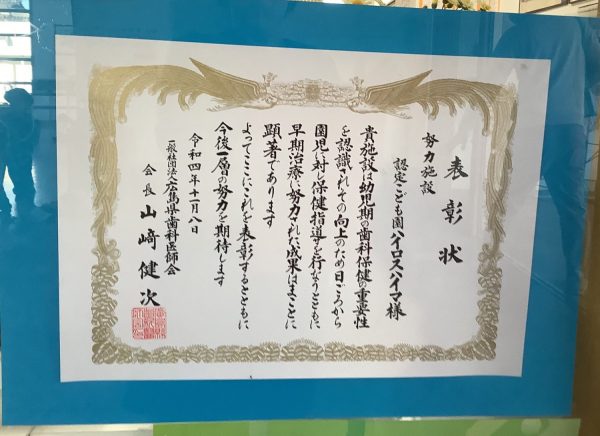 表彰状
努力施設
認定こども園ハイロスハイマ様
貴施設は幼児期の歯科保健の重要性
を認識されその向上のため日ごろから
園児に対し保健指導を行なうとともに
早期治療に努力された成果はまことに
顕著であります
よってここにこれを表彰するとともに
今後一層の努力を期待します
令和四年十一月八日
一般社団法人広島県歯科医師会
会長山﨑健次